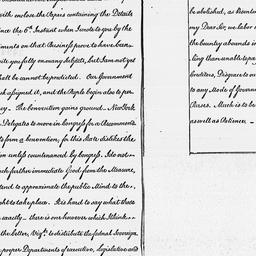 with enclose the Papers containing the Details
ince the 6th Instant when I wrote to you by the
iments on that Business prove to have been
ite you fully on many Subjects, but I am not yet
shall be cannot be predicted. Our Government
assigned it, and the People begin also to per
cy. The Convention gains ground. New York
Delegates to move in Congress for a Recommend
to form a Convention; for this State dislikes the
on unless countenanced by Congress. I do not
ch further immediate Good from the Measure,
tend to approximate the public Mind to the
ght to take place. It is hard to say what those
exactly - there is one however which I think
the better, Viz.t to distribute the federal Sovereign
proper Departments of executive, legislative and
be abolished, as Scient
my Dear Sir, we labor
the Country abounds in
ling than unable to pa
Creditors, Disgrace to ou
to any Mode of Governm
Classes. Much is to be
as well as Patience. -